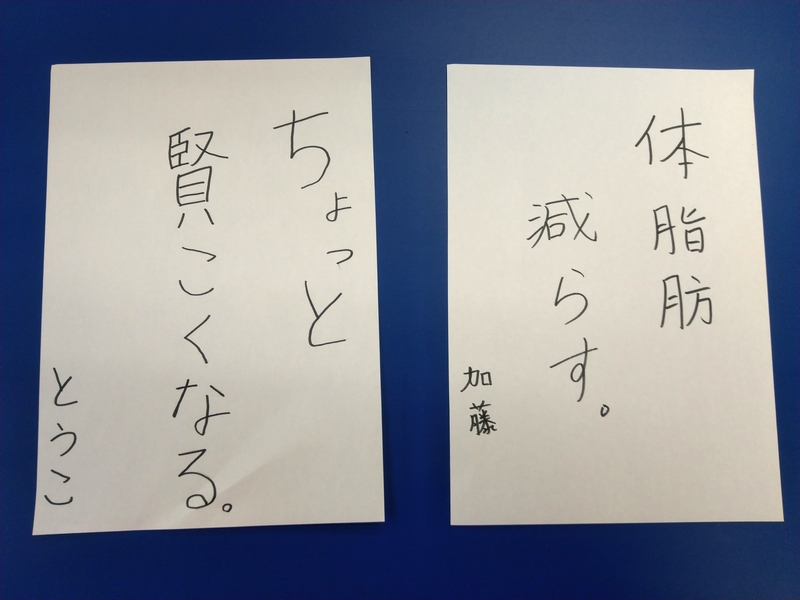 ちょっと
賢こくなる。
とうこ
体脂肪
減らす。
加藤